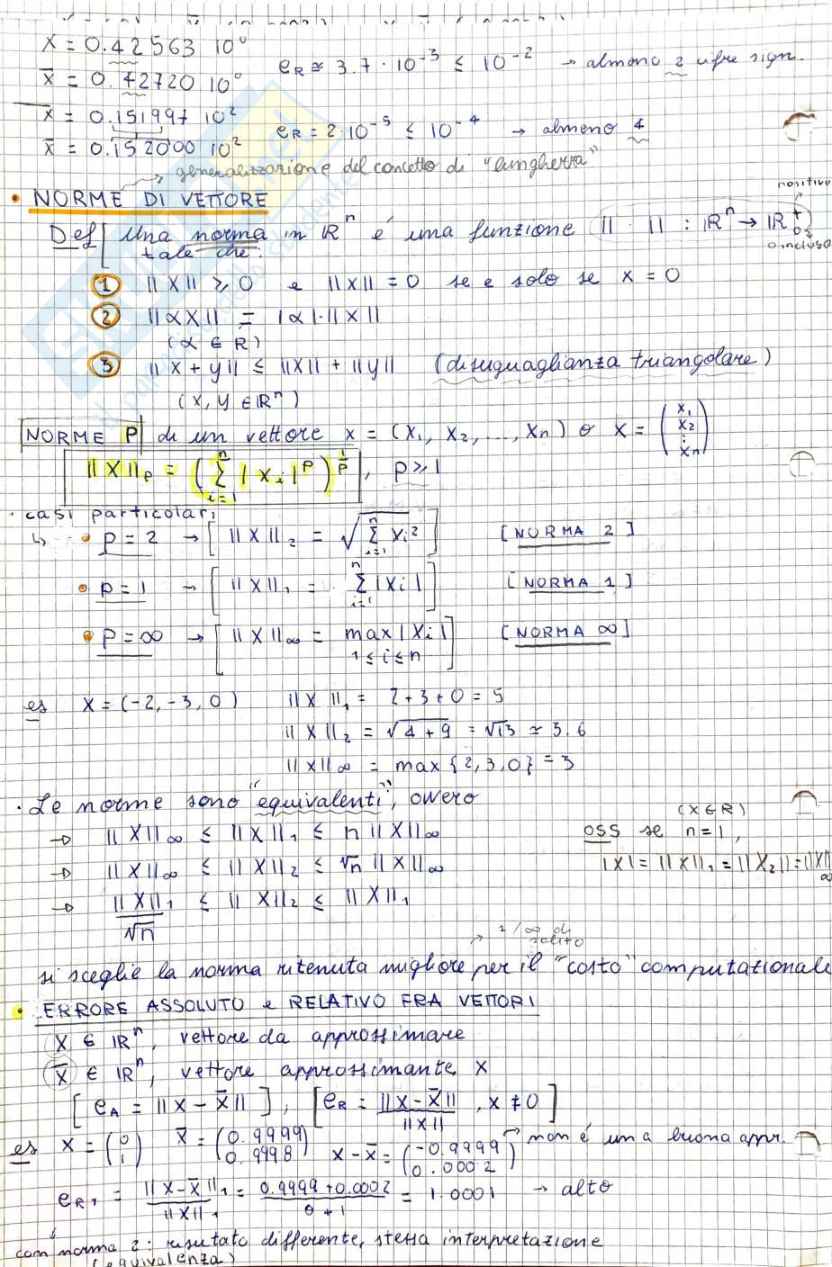 X = 0.42563 10⁰
e_R ≅ 3.7 · 10⁻³ ≤ 10⁻² → almeno 2 cifre sign.
x̄ = 0.42720 10⁰
x = 0.151997 10²
e_R = 2 10⁻⁵ ≤ 10⁻⁴ → almeno 4
x̄ = 0.152000 10²
generalizzazione del concetto di "lunghezza"
• NORME DI VETTORE
positivo
Def Una norma in ℝⁿ é una funzione || · || : ℝⁿ → ℝ₀⁺
tale che:
0 incluso
① ||X|| ≥ 0 e ||X|| = 0 se e solo se x = 0
② ||αX|| = |α|·||X||
(α ∈ R)
③ ||X + y|| ≤ ||X|| + ||y|| (disuguaglianza triangolare)
(X, Y ∈ ℝⁿ)
NORME P di un vettore x = (X₁, X₂, ..., Xn) o X = (X₁ X₂ ⋮ Xn)
||X||_P = (Σ_{i=1}^{n} |X_i|^P)^{1/P}, P ≥ 1
· casi particolari
↳ • P = 2 → [ ||X||₂ = √(Σ_{i=1}^{n} X_i²) ] [NORMA 2]
• P = 1 → [ ||X||₁ = Σ_{i=1}^{n} |X_i| ] [NORMA 1]
• P = ∞ → [ ||X||∞ = max |X_i| ] [NORMA ∞]
1 ≤ i ≤ n
es X = (-2, -3, 0) ||X||₁ = 2+3+0 = 5
||X||₂ = √(4+9) = √13 ≃ 3.6
||X||∞ = max {2,3,0} = 3
· Le norme sono "equivalenti", ovvero
(X ∈ R)
→ ||X||∞ ≤ ||X||₁ ≤ n ||X||∞ OSS se n=1,
→ ||X||∞ ≤ ||X||₂ ≤ √n ||X||∞ |X| = ||X||₁ = ||X₂|| = ||X||∞
→ ||X||₁/√n ≤ ||X||₂ ≤ ||X||₁
1/∞ di solito
si sceglie la norma ritenuta migliore per il "costo" computazionale
• ERRORE ASSOLUTO e RELATIVO FRA VETTORI
X ∈ ℝⁿ, vettore da approssimare
X̄ ∈ ℝⁿ, vettore approssimante X
[ e_A = ||X - X̄|| ], [ e_R = ||X - X̄||/||X||, X ≠ 0 ]
es X = (0 1) X̄ = (0.9999 0.9998) X - X̄ = (-0.9999 0.0002) → non é una buona appr.
e_R1 = ||X - X̄||₁/||X||₁ = (0.9999+0.0002)/(0+1) = 1.0001 → alto
con norma 2: risultato differente, stessa interpretazione
(equivalenza)